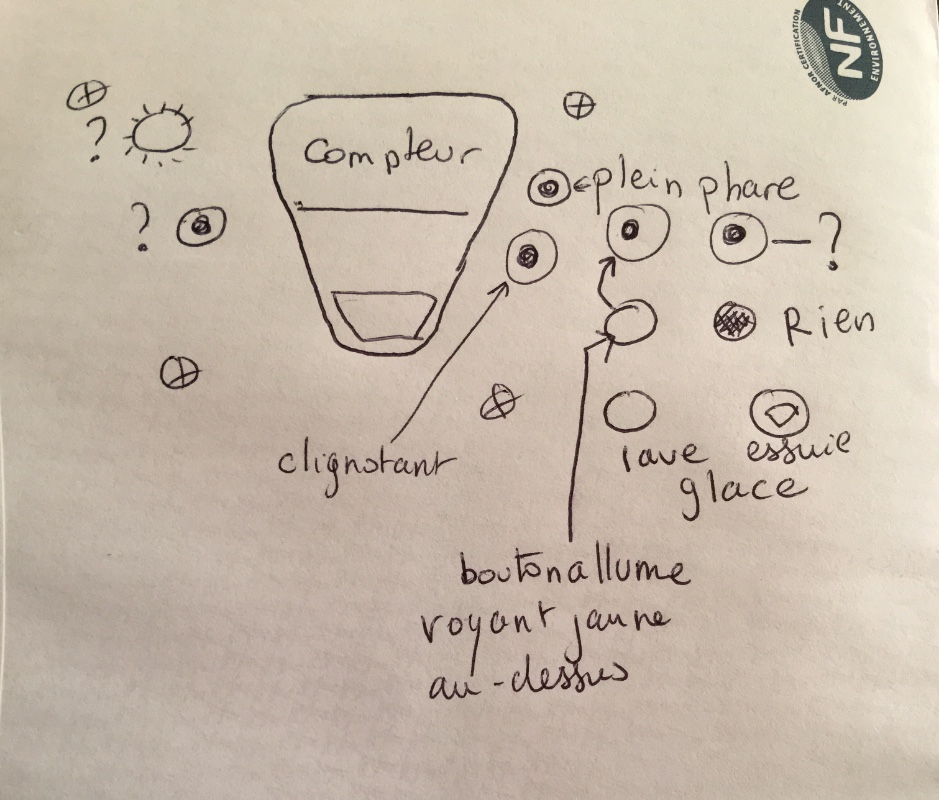 NF
PAR AFNOR CERTIFICATION
ENVIRONNEMENT
?
Compteur
← plein phare
?
— ?
Rien
clignotant
lave essuie
glace
bouton allume
voyant jaune
au-dessus